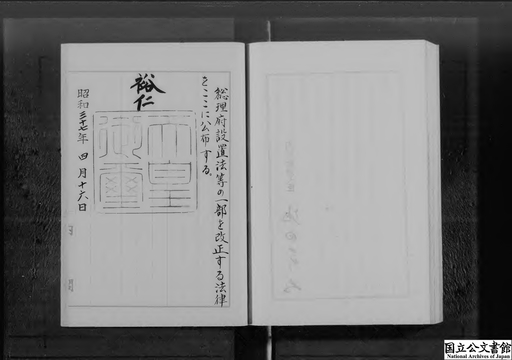 総理府設置法等の一部を改正する法律
をここに公布する。
裕仁
天皇
御璽
昭和三十七年四月十六日
国立公文書館
National Archives of Japan